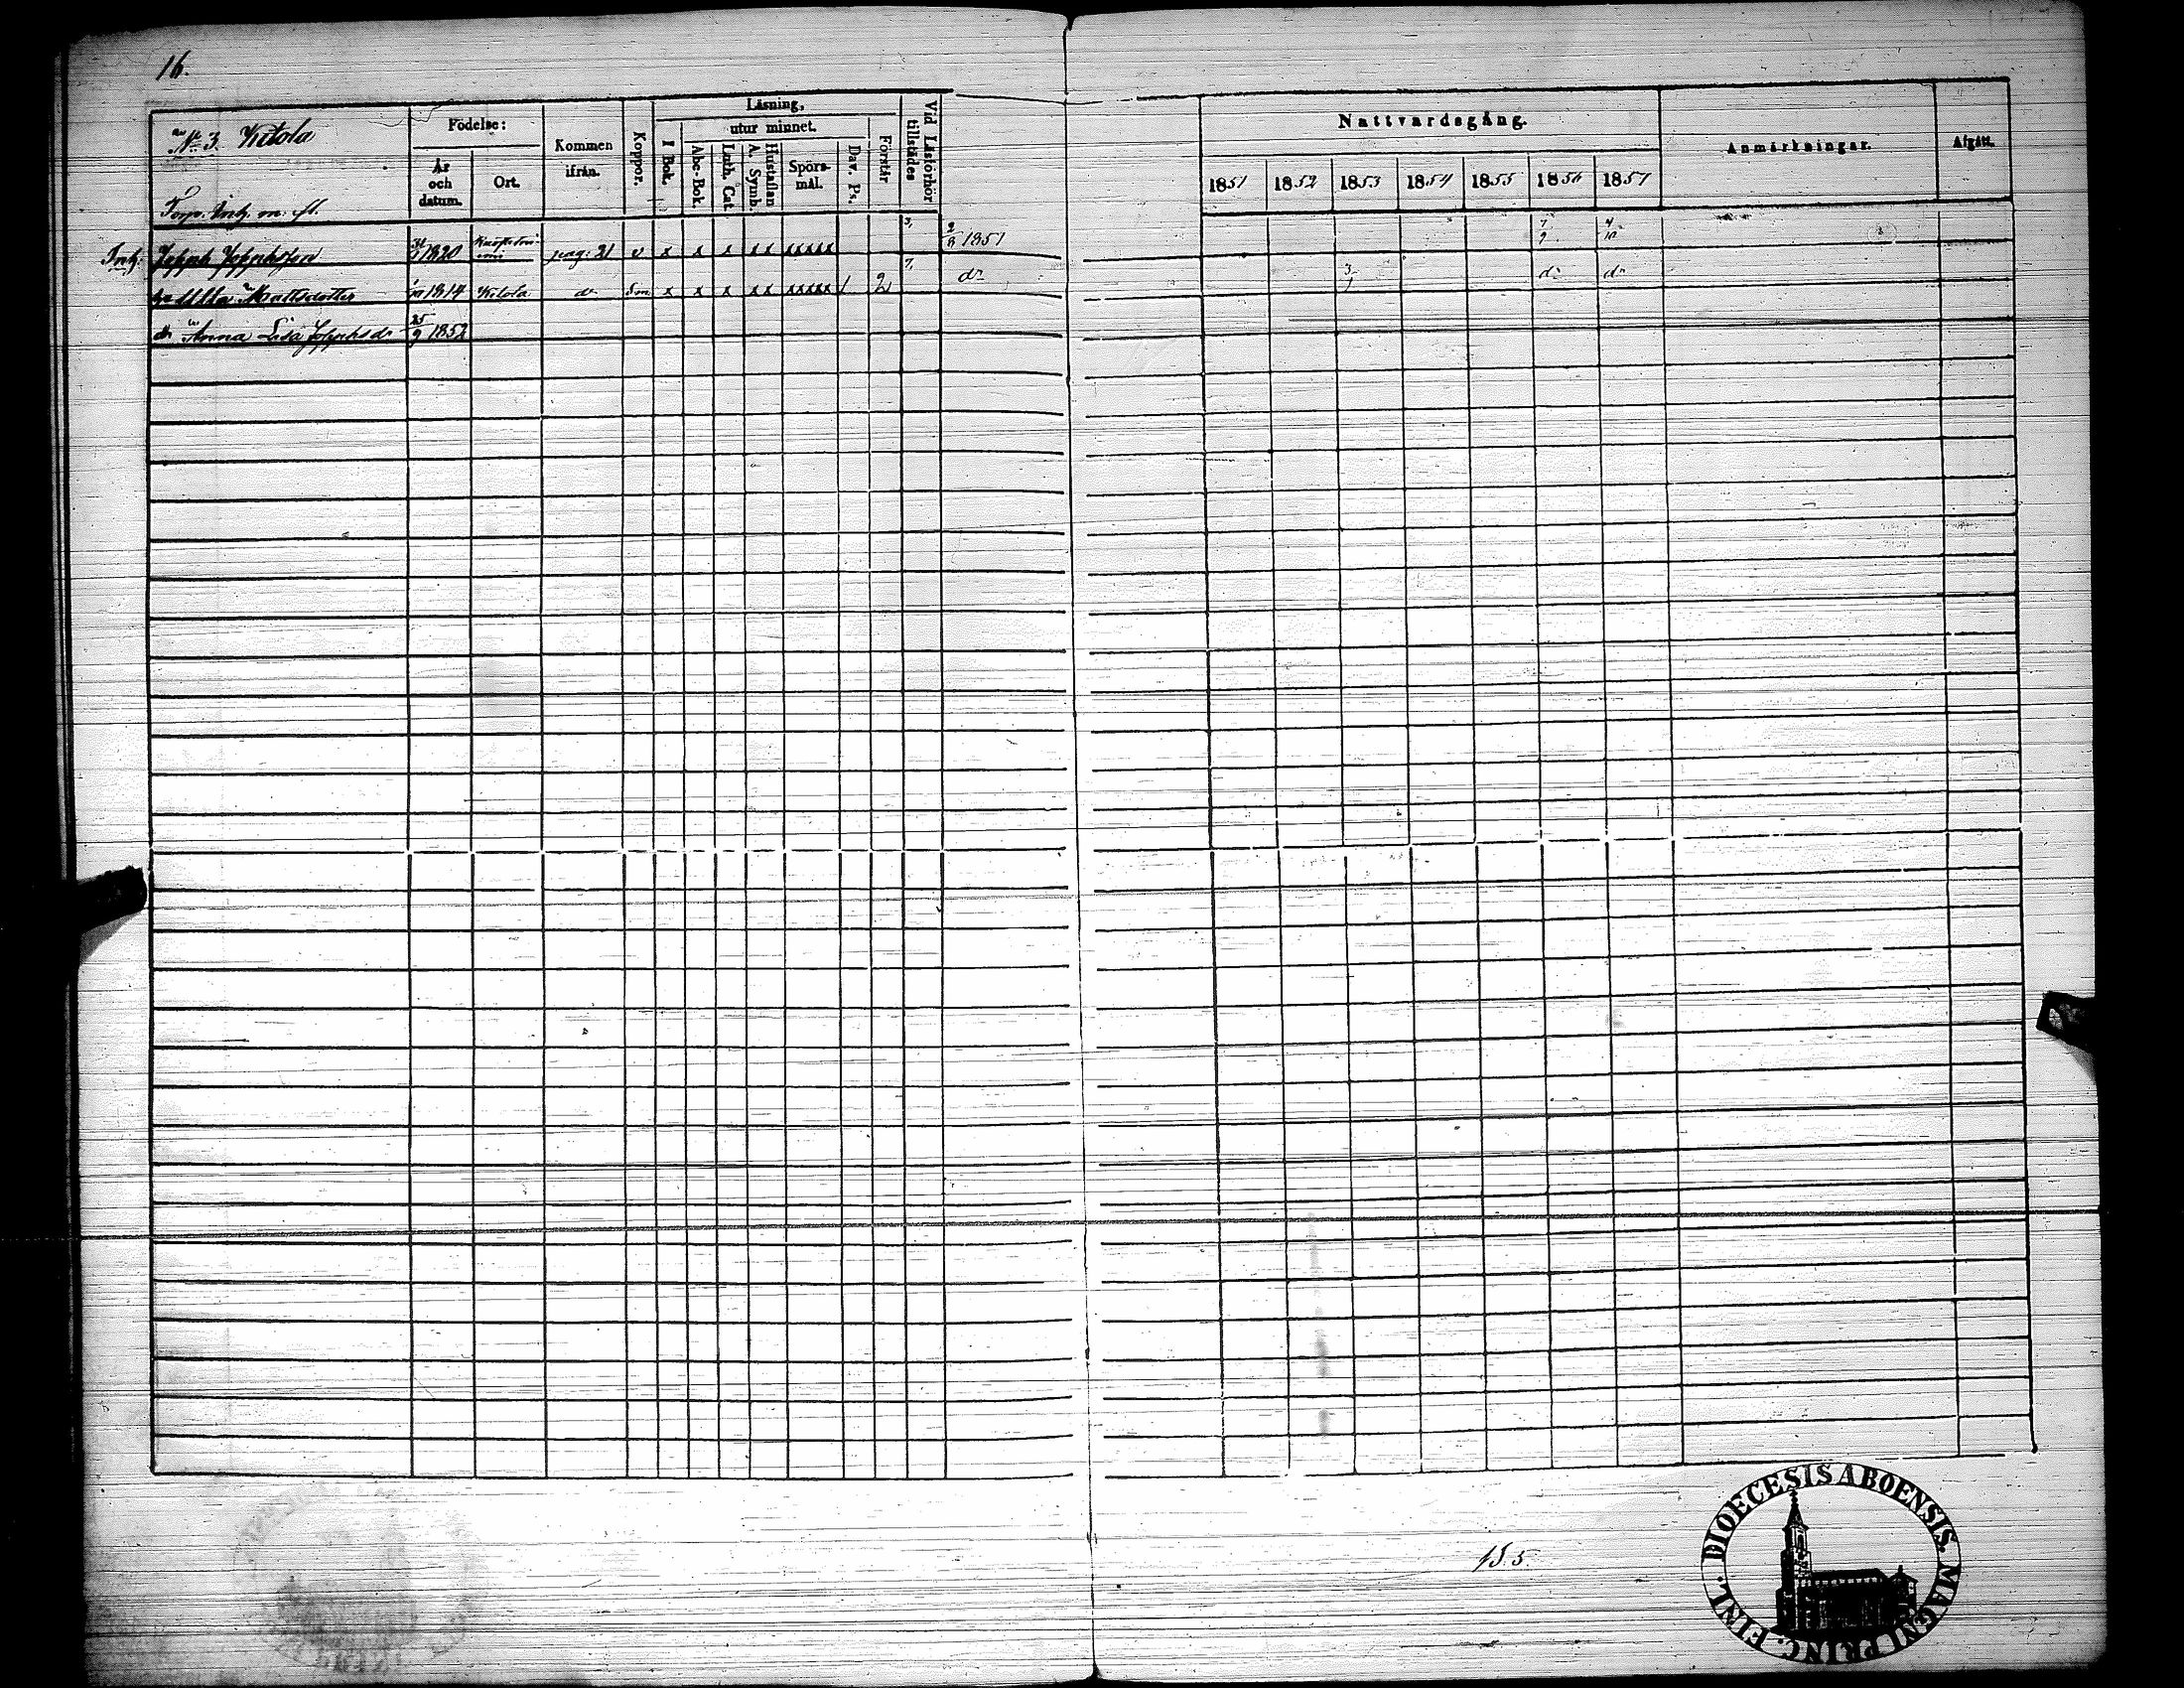 16.
No 3. Kitola
Torp. Inh. m. fl.
Födelse:
År och datum.
Ort.
Kommen ifrån.
Koppor.
Läsning,
utur minnet.
I Bok.
Abc-Bok
Luth. Cat.
Hustaflan
A. Symb.
Spörs-mål.
Dav. Ps.
Förstår
Vid Läsförhör tillstädes
Nattvardsgång.
1851 1852 1853 1854 1855 1856 1857
Anmärkningar.
Afgått.
Inh. Joseph Josephsson 1820 pag: 21 v x x x x x x x x x x 3, 2/8 1851 7/9 4/10
hu Ulla Mattsdotter 1814 Kitola do x x x x x x x x x x 1 2 7, do 3/1 do do
dr Anna Lisa Josephsdr 25/9 1852
15.5
DIOECESIS ABOENSIS. MAGNI PRINC. FINL.